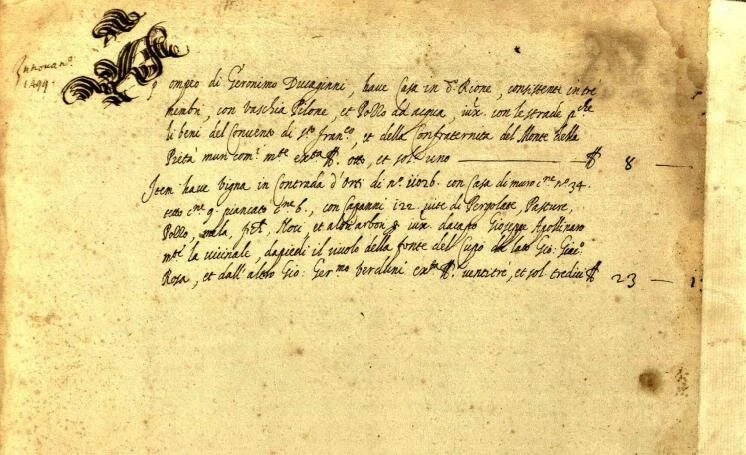 Innovan.º
1499.
Pompeo di Geronimo Ducagini, have Casa in d.º Rione, consistente in trè
membri, con Vaschia Pilone, et Pozzo da acqua, iux. con le strade p.che
li beni del Convento di s.to Franc.o, et della Confraternita del Monte della
Pietà mun com.e ext.ta otto, et sol. uno — 8 —
Item have Vigna in Contrada d'Orti di n.º con Casa di muro c.ne n.º 34.
tetto c.ne 9. piancato c.ne 6., con Capanni 122 vite di Pergolate, Pasture,
Pozzo, mela, Noci, et altri arbori iux. dacapo Gioseppe Apollinaro
la vicinale, dapiedi il rivolo della fonte del Lupo da lato Gio: Giac.º
Rosa, et dall'altro Gio: Ger.mo Verduni ext.ta ventitre, et sol tredici 23 — 1